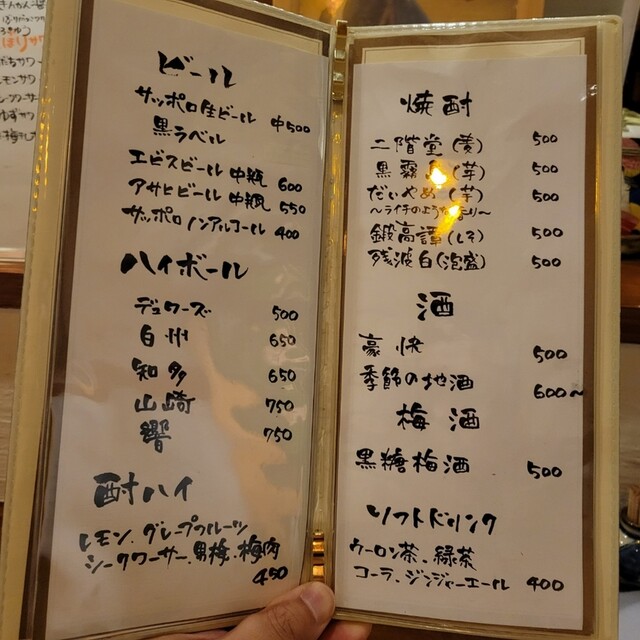 ビール
サッポロ生ビール 中500
黒ラベル
エビスビール 中瓶 600
アサヒビール 中瓶 550
サッポロ ノンアルコール 400
ハイボール
デュワーズ 500
白州 650
知多 650
山崎 750
響 750
酎ハイ
レモン、グレープフルーツ
シークワーサー、男梅、梅肉
450
焼酎
二階堂(麦) 500
黒霧島(芋) 500
だいやめ(芋) 500
〜ライチのような香り〜
鍛高譚(しそ) 500
残波白(泡盛) 500
酒
豪快 500
季節の地酒 600〜
梅酒
黒糖梅酒 500
ソフトドリンク
ウーロン茶、緑茶
コーラ、ジンジャーエール 400